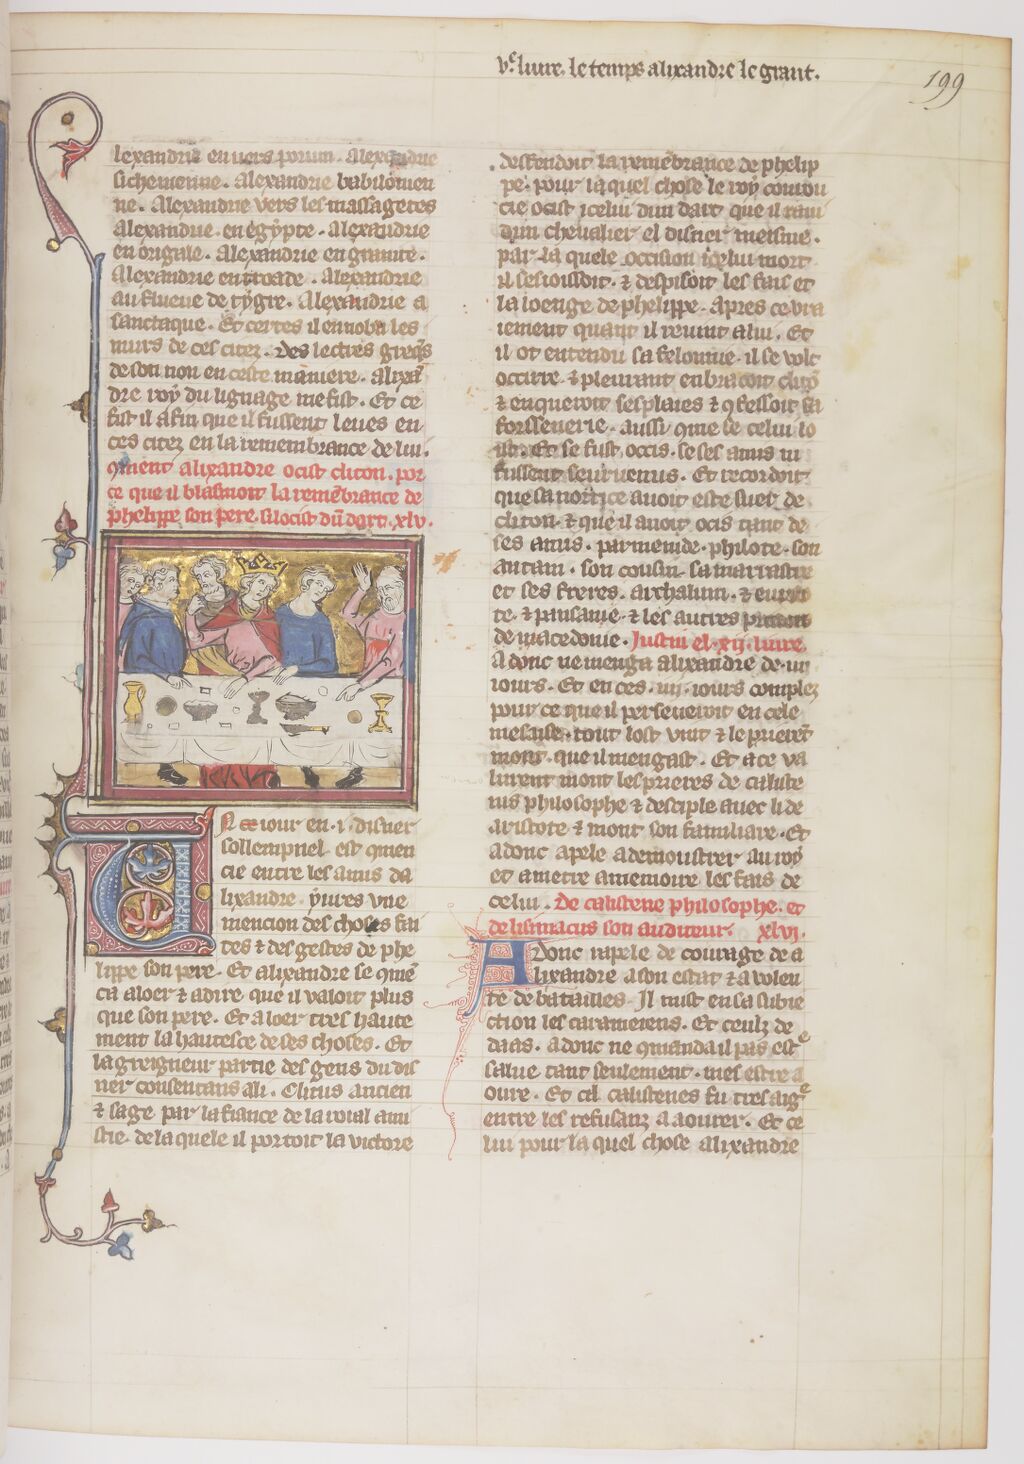 v.e liure. le temps alixandre le grant.
199
lexandrie en vers porum. Alexandrie
sichemienne. Alexandrie babilonien
ne. Alexandrie vers les massagetes
Alexandrie. en egypte. Alexandrie
en origale. Alexandrie en granite.
Alexandrie en troade. Alexandrie
au flueue de tygre. Alexandrie a
sanctaque. Et certes il ennobli les
murs de ces citez. des lectres greqs
de son non en ceste maniere. alixã
dre roy du lignage me fist. Et ce
fist il afin que il fussent leues en
ces citez en la remembrance de lui.
9ment alixandre ocist cliton. por
ce que il blasmoit la remẽbrance de
phelippe son pere. si locist dũ dart. xlv.
N ce iour en .i. disner
sollempnel est qmen
cie entre les amis da
lixandre. yures vne
mencion des choses fai
tes ⁊ des gestes de phe
lippe son pere. Et alixandre se qmẽ
ca a loer ⁊ a dire que il valoit plus
que son pere. Et a loer tres haute
ment la hautesce de ses choses. Et
la greigneur partie des gens du dis
ner consentans a li. Clitus ancien
⁊ sage par la fiance de la roial ami
stie. de la quele il portoit la victore
. deffendoit la remẽbrance de phelip
pe. pour la quel chose le roy courou
cie ocist icelui dun dart que il raui
dun cheualier el disner meisme.
par la quele occision icelui mort
il sesioissoit. ⁊ despisoit les fais et
la loenge de phelippe. Apres ce vra
iement quant il reuint a lui. Et
il ot entendu sa felonnie. il se volt
occirre. ⁊ pleurant enbracoit clitõ
⁊ enqueroit ses plaies ⁊ 9fessoit sa
forssenerie. aussi qme se celui lo
ist. Et se fust occis. se ses amis ni
fussent seuruenus. Et recordoit
que sa norrice auoit este suer de
cliton. ⁊ que il auoit ocis tant de
ses amis. parmenide. philote. son
antain. son cousin. sa marrastre
et ses freres. archalim. ⁊ eurilo
te. ⁊ pausanie. ⁊ les autres princes
de macedonie. Justin el .xij. liure.
Adonc ne menga alixandre de .iiij
iours. Et en ces .iiij. iours complez
pour ce que il perseueroit en cele
mesaise. tout lost vint ⁊ le prierẽt
mont. que il mengast. Et a ce va
lurent mont les prieres de caliste
nus philosophe ⁊ desciple auec li de
aristote ⁊ mont son familiaire. Et
adonc apele a demoustrer au roy
et a metre a memoire les fais de
celui. De calistene philosophe. et
de lisimacus son auditeur. xlvj.
Adonc rapele de courage de a
lixandre a son estat ⁊ a volen
te de batailles. Il mist en sa subie
ction les caramenens. Et ceulz de
daas. adonc ne qmanda il pas estᵉ
salue tant seulement. mes estre a
oure. Et cil calistenes fu tres aigᵉ
entre les refusanz a aourer. Et ce
lui pour la quel chose alixandre